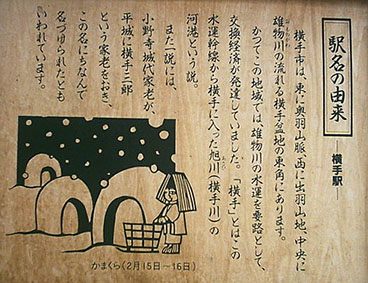 駅名の由来
―横手駅
横手市は、東に奥羽山脈、西に出羽山地、中央に
雄物川の流れる横手盆地の東角にあります。
おものがわ
かつてこの地域では、雄物川の水運を要路として、
交換経済が発達していました。「横手」とはこの
水運幹線から横手に入った旭川(横手川)の
河港という説。
また一説には、
小野寺城代家老が、
平城に横手三郎
という家老をおき、
この名にちなんで
名づけられたとも
いわれています。
かまくら(2月15日~16日)